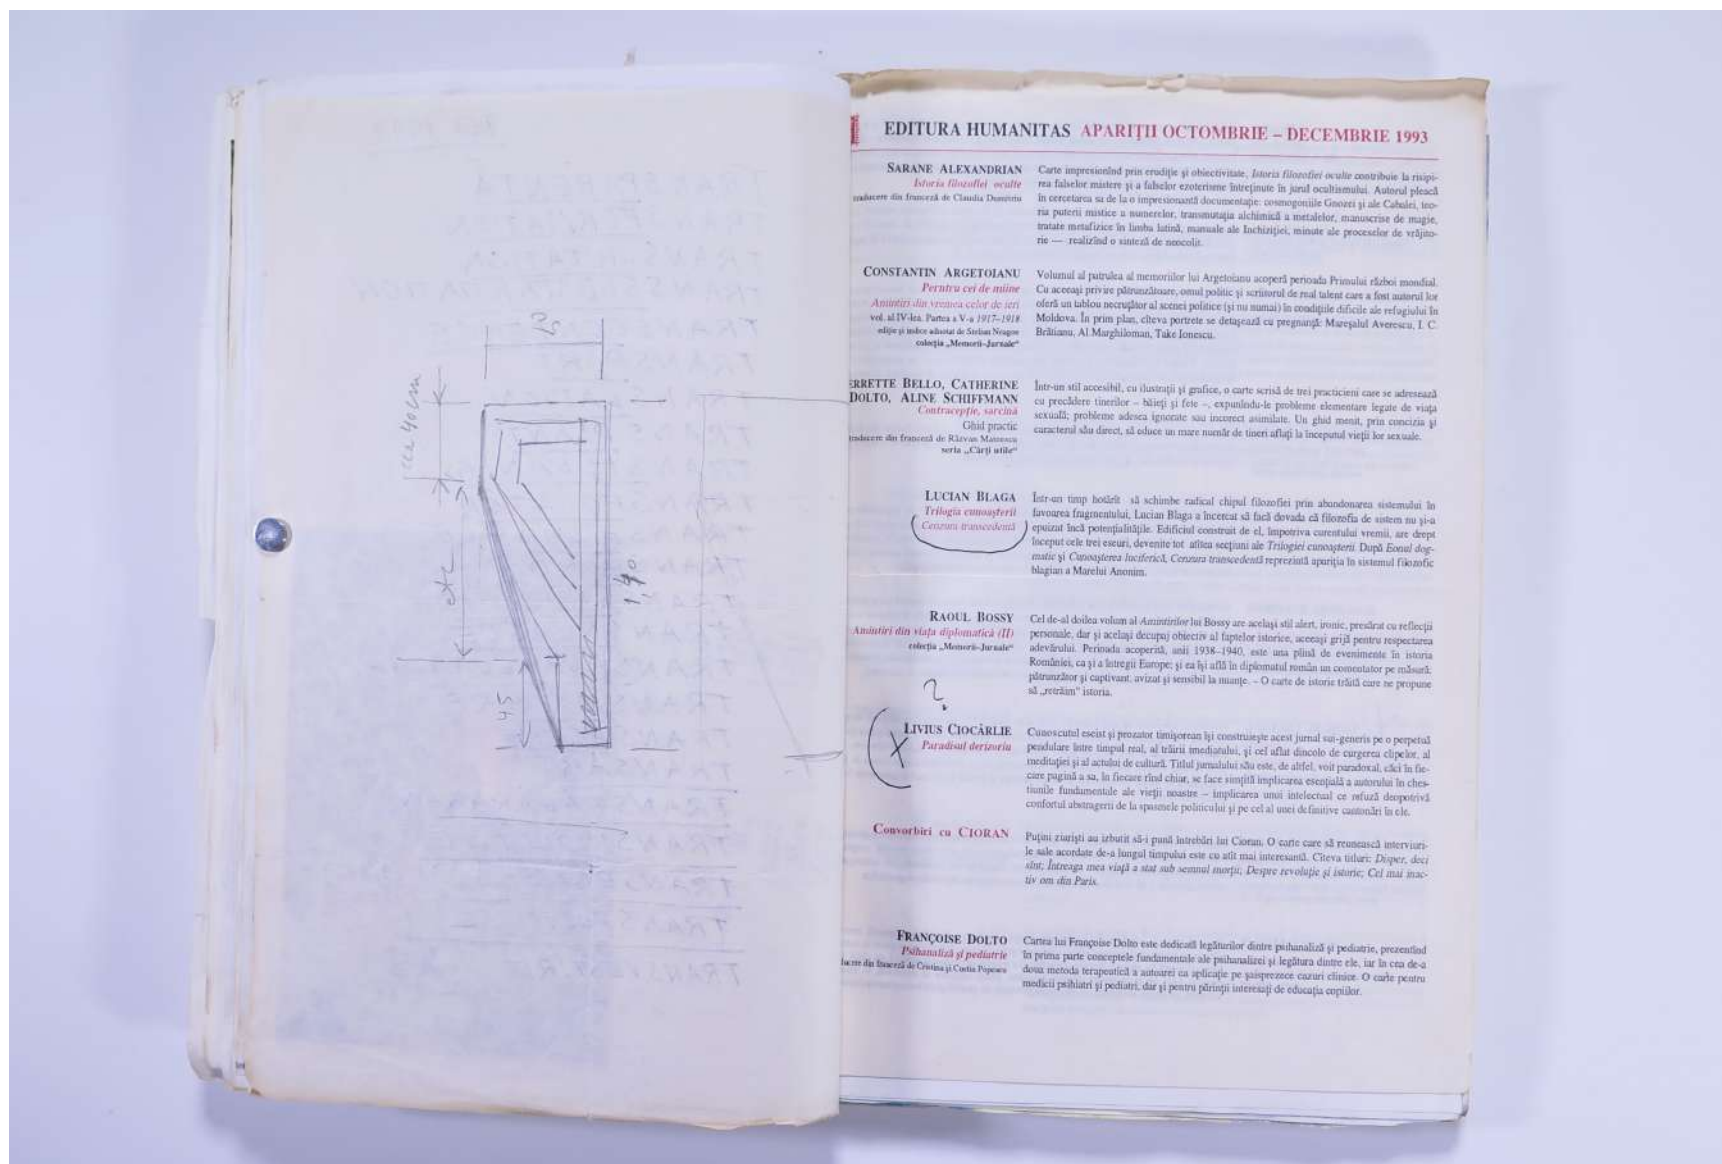 cca 40 cm
etc
45
1,40
EDITURA HUMANITAS APARIȚII OCTOMBRIE – DECEMBRIE 1993
SARANE ALEXANDRIAN
Istoria filozofiei oculte
traducere din franceză de Claudia Dumitriu
Carte impresionînd prin erudiție și obiectivitate, Istoria filozofiei oculte contribuie la risipi-
rea falselor mistere și a falselor ezoterisme întreținute în jurul ocultismului. Autorul pleacă
în cercetarea sa de la o impresionantă documentație: cosmogoniile Gnozei și ale Cabalei, teo-
ria puterii mistice a numerelor, transmutația alchimică a metalelor, manuscrise de magie,
tratate metafizice în limba latină, manuale ale Inchiziției, minute ale proceselor de vrăjito-
rie — realizînd o sinteză de neocolit.
CONSTANTIN ARGETOIANU
Pentru cei de mîine
Amintiri din vremea celor de ieri
vol. al IV-lea. Partea a V-a 1917–1918
ediție și indice adnotat de Stelian Neagoe
colecția „Memorii–Jurnale“
Volumul al patrulea al memoriilor lui Argetoianu acoperă perioada Primului război mondial.
Cu aceeași privire pătrunzătoare, omul politic și scriitorul de real talent care a fost autorul lor
oferă un tablou necruțător al scenei politice (și nu numai) în condițiile dificile ale refugiului în
Moldova. În prim plan, cîteva portrete se detașează cu pregnanță: Mareșalul Averescu, I. C.
Brătianu, Al Marghiloman, Take Ionescu.
ERRETTE BELLO, CATHERINE
DOLTO, ALINE SCHIFFMANN
Contracepție, sarcină
Ghid practic
traducere din franceză de Răzvan
seria „Cărți utile“
Într-un stil accesibil, cu ilustrații și grafice, o carte scrisă de trei practicieni care se adresează
cu precădere tinerilor – băieți și fete –, expunîndu-le probleme elementare legate de viața
sexuală; probleme adesea ignorate sau incorect asimilate. Un ghid menit, prin concizia și
caracterul său direct, să educe un mare număr de tineri aflați la începutul vieții lor sexuale.
LUCIAN BLAGA
Trilogia cunoașterii
Cenzura transcedentă
Într-un timp hotărît să schimbe radical chipul filozofiei prin abandonarea sistemului în
favoarea fragmentului, Lucian Blaga a încercat să facă dovada că filozofia de sistem nu și-a
epuizat încă potențialitățile. Edificiul construit de el, împotriva curentului vremii, are drept
început cele trei eseuri, devenite tot atîtea secțiuni ale Trilogiei cunoașterii. După Eonul dog-
matic și Cunoașterea luciferică, Cenzura transcedentă reprezintă apariția în sistemul filozofic
blagian a Marelui Anonim.
RAOUL BOSSY
Amintiri din viața diplomatică (II)
colecția „Memorii–Jurnale“
Cel de-al doilea volum al Amintirilor lui Bossy are același stil alert, ironic, presărat cu reflecții
personale, dar și același decupaj obiectiv al faptelor istorice, aceeași grijă pentru respectarea
adevărului. Perioada acoperită, anii 1938–1940, este una plină de evenimente în istoria
României, ca și a întregii Europe; și ea își află în diplomatul român un comentator pe măsură:
pătrunzător și captivant, avizat și sensibil la nuanțe. – O carte de istorie trăită care ne propune
să „retrăim“ istoria.
?
X
LIVIUS CIOCÂRLIE
Paradisul derizoriu
Cunoscutul eseist și prozator timișorean își construiește acest jurnal sui-generis pe o perpetuă
pendulare între timpul real, al trăirii imediatului, și cel aflat dincolo de curgerea clipelor, al
meditației și al actului de cultură. Titlul jurnalului său este, de altfel, voit paradoxal, căci în fie-
care pagină a sa, în fiecare rînd chiar, se face simțită implicarea esențială a autorului în ches-
tiunile fundamentale ale vieții noastre – implicarea unui intelectual ce refuză deopotrivă
confortul abstragerii de la spasmele politicului și pe cel al unei definitive cantonări în ele.
Convorbiri cu CIORAN
Puțini ziariști au izbutit să-i pună întrebări lui Cioran. O carte care să reunească interviuri-
le sale acordate de-a lungul timpului este cu atît mai interesantă. Cîteva titluri: Disper, deci
sînt; Întreaga mea viață a stat sub semnul morții; Despre revoluție și istorie; Cel mai inac-
tiv om din Paris.
FRANÇOISE DOLTO
Psihanaliză și pediatrie
ducere din franceză de Cristina și Costin Popescu
Cartea lui Françoise Dolto este dedicată legăturilor dintre psihanaliză și pediatrie, prezentînd
în prima parte conceptele fundamentale ale psihanalizei și legătura dintre ele, iar în cea de-a
doua metoda terapeutică a autoarei cu aplicație pe șaisprezece cazuri clinice. O carte pentru
medicii psihiatri și pediatri, dar și pentru părinții interesați de educația copiilor.